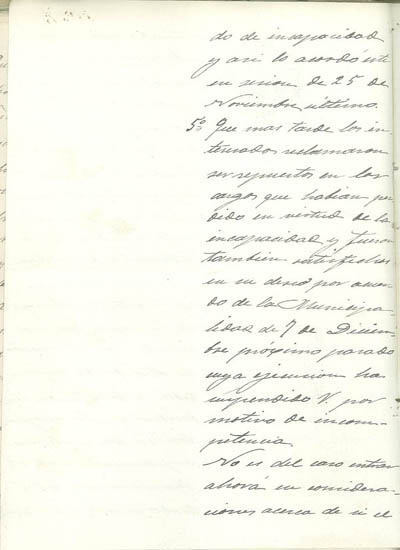 do de incapacidad
y asi lo acordó esti
en sesion de 25 de
Noviembre último.
5º Que mas tarde los in-
teresados reclamaron
ser repuestos en los
cargos que habian per
dido en virtud de la
incapacidad y fueron
tambien satisfechos
en su deseo por acuer
do de la Municipa-
lidad de 7 de Diciem-
bre próximo pasado
cuya ejecucion ha
suspendido V. por
motivo de incom-
petencia.
No es del caso entrar
ahora en considera-
ciones acerca de si el